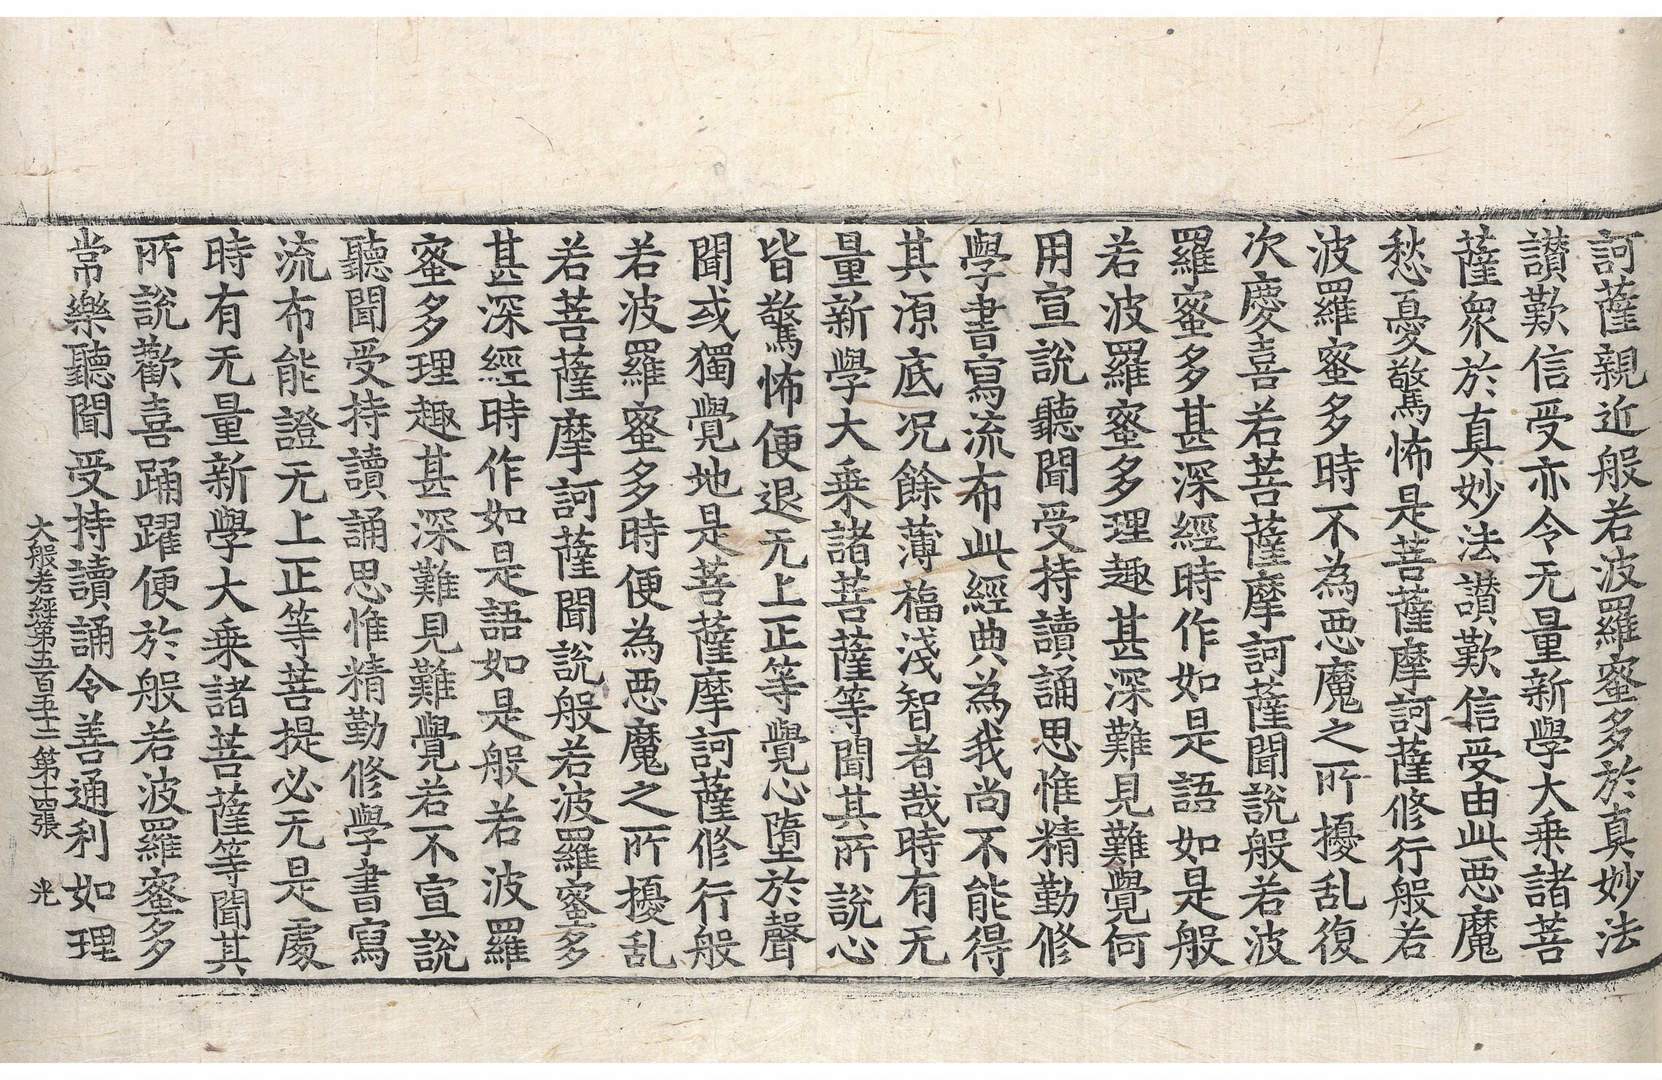 訶薩親近般若波羅蜜多於真妙法
讃歎信受亦令无量新學大乗諸菩
薩衆於真妙法讃歎信受由此惡魔
愁憂驚怖是菩薩摩訶薩修行般若
波羅蜜多時不為惡魔之所擾乱復
次慶喜若菩薩摩訶薩聞說般若波
羅蜜多甚深經時作如是語如是般
若波羅蜜多理趣甚深難見難覺何
用宣說聽聞受持讀誦思惟精勤修
學書寫流布此經典為我尚不能得
其源底况餘薄福淺智者哉時有无
量新學大乗諸菩薩等聞其所說心
皆驚怖便退无上正等覺心墮於聲
聞或獨覺地是菩薩摩訶薩修行般
若波羅蜜多時便為惡魔之所擾乱
若菩薩摩訶薩聞說般若波羅蜜多
甚深經時作如是語如是般若波羅
蜜多理趣甚深難見難覺若不宣說
聽聞受持讀誦思惟精勤修學書寫
流布能證无上正等菩提必无是處
時有无量新學大乗諸菩薩等聞其
所說歡喜踊躍便於般若波羅蜜多
常樂聽聞受持讀誦令善通利如理
大般若經第五百五十二 第十四張 光